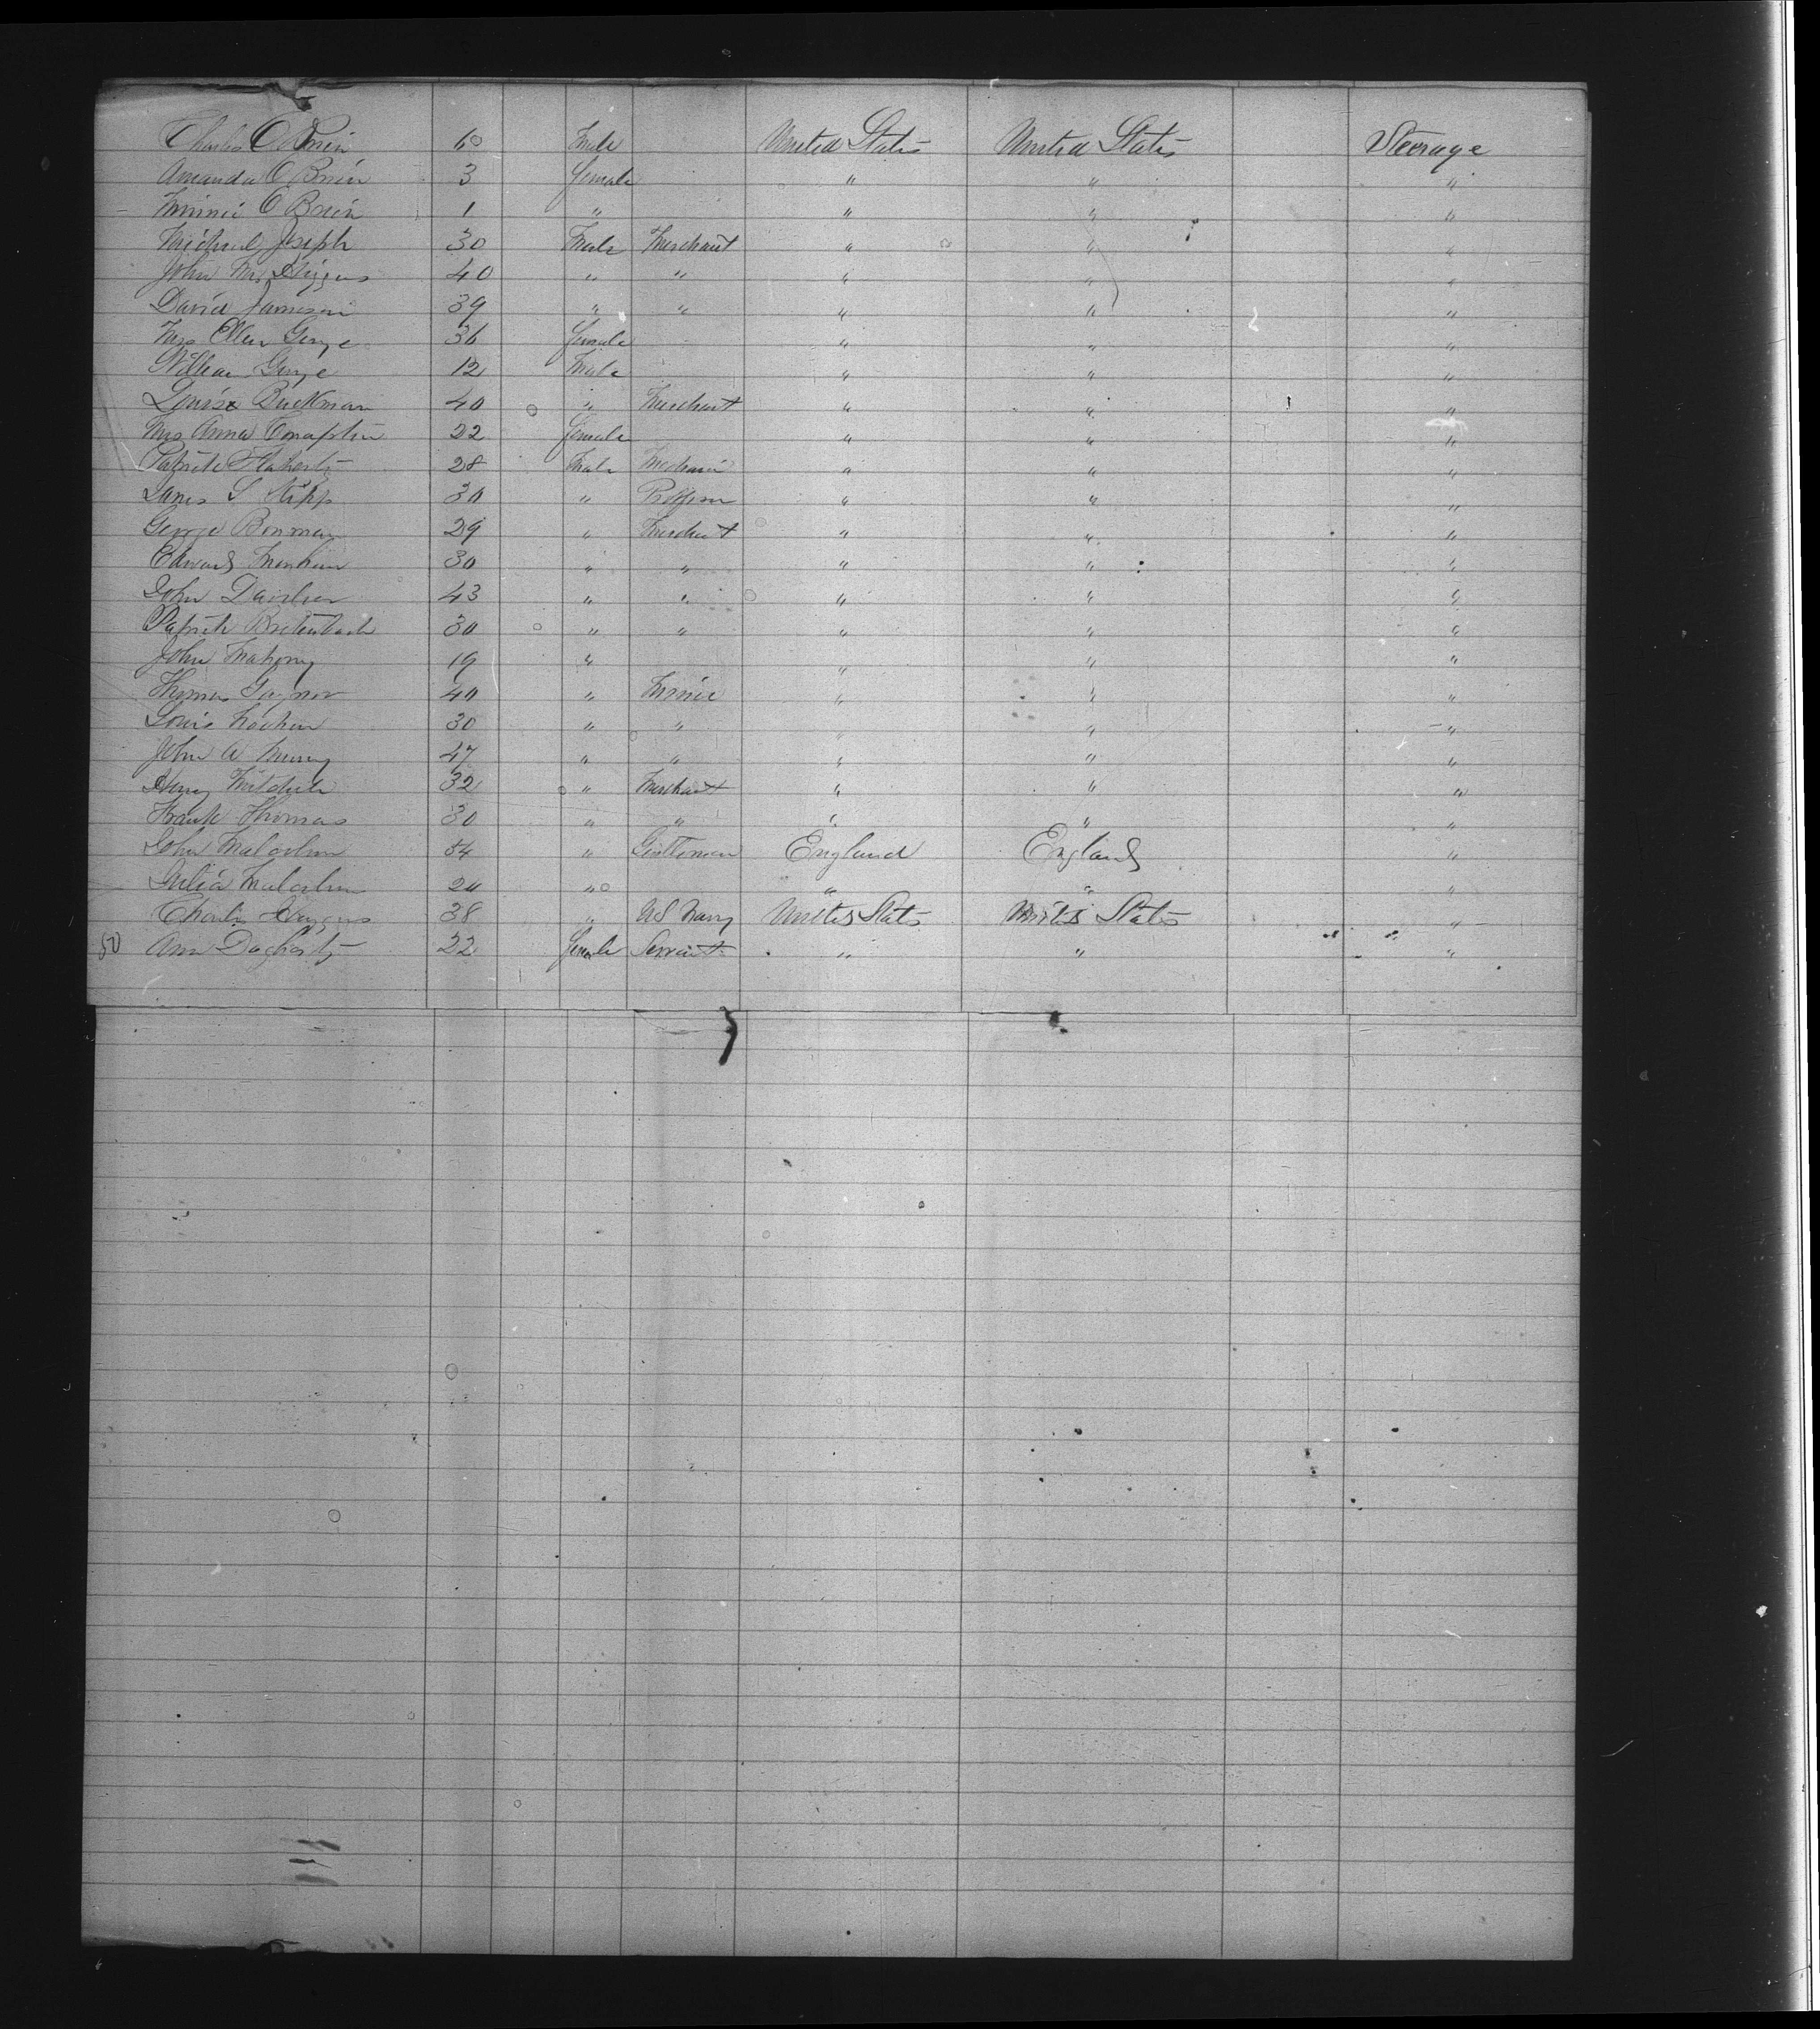 Charles O Brien 60 Male United States United States Steerage
Amanda O Brien 3 female " " "
Minnie O Brien 1 " " " "
Michael Joseph 30 Male Merchant " " "
John Higgins 40 " " " " "
David Jameson 39 " " " " "
Mrs Ellen George 36 female " " "
William George 12 Male " " "
Buckman 40 " Merchant " " "
Mrs Anna 22 female " " "
Patrick Flaherty 28 Male Mechanic " " "
James S Stipp 30 " " " "
George Bowman 29 " Merchant " " "
Edward 30 " " " " "
John 43 " " " " "
Patrick Breitenbach 30 " " " " "
John Mahony 19 " " " "
Thomas Gaynor 40 " Miner " " "
Louis 30 " " " " "
John A Murray 47 " " " " "
Henry Mitchell 32 " Merchant " " "
Frank Thomas 30 " " " " "
John Malcolm 54 " Gentleman England England "
Julia Malcolm 20 " " " "
Charles Higgins 38 " US Navy United States United States "
50 Ann Dogherty 22 female Servant " " "